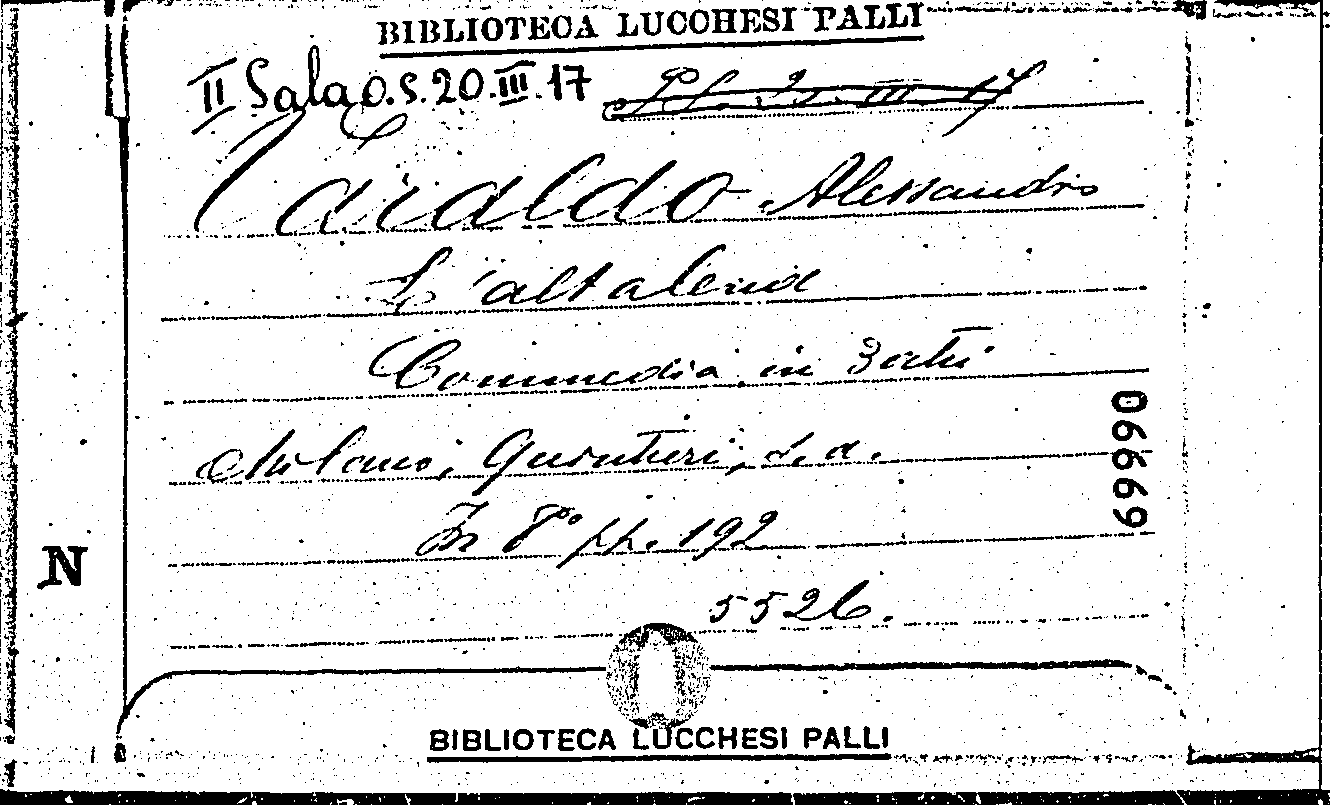 BIBLIOTECA LUCCHESI PALLI
II Sala O.S. 20. III. 17
Varaldo Alessandro
L'altalena
Commedia in 3 atti
Milano, Quintieri, s. a.
In 8° pp. 192
5526.
09669
N
BIBLIOTECA LUCCHESI PALLI